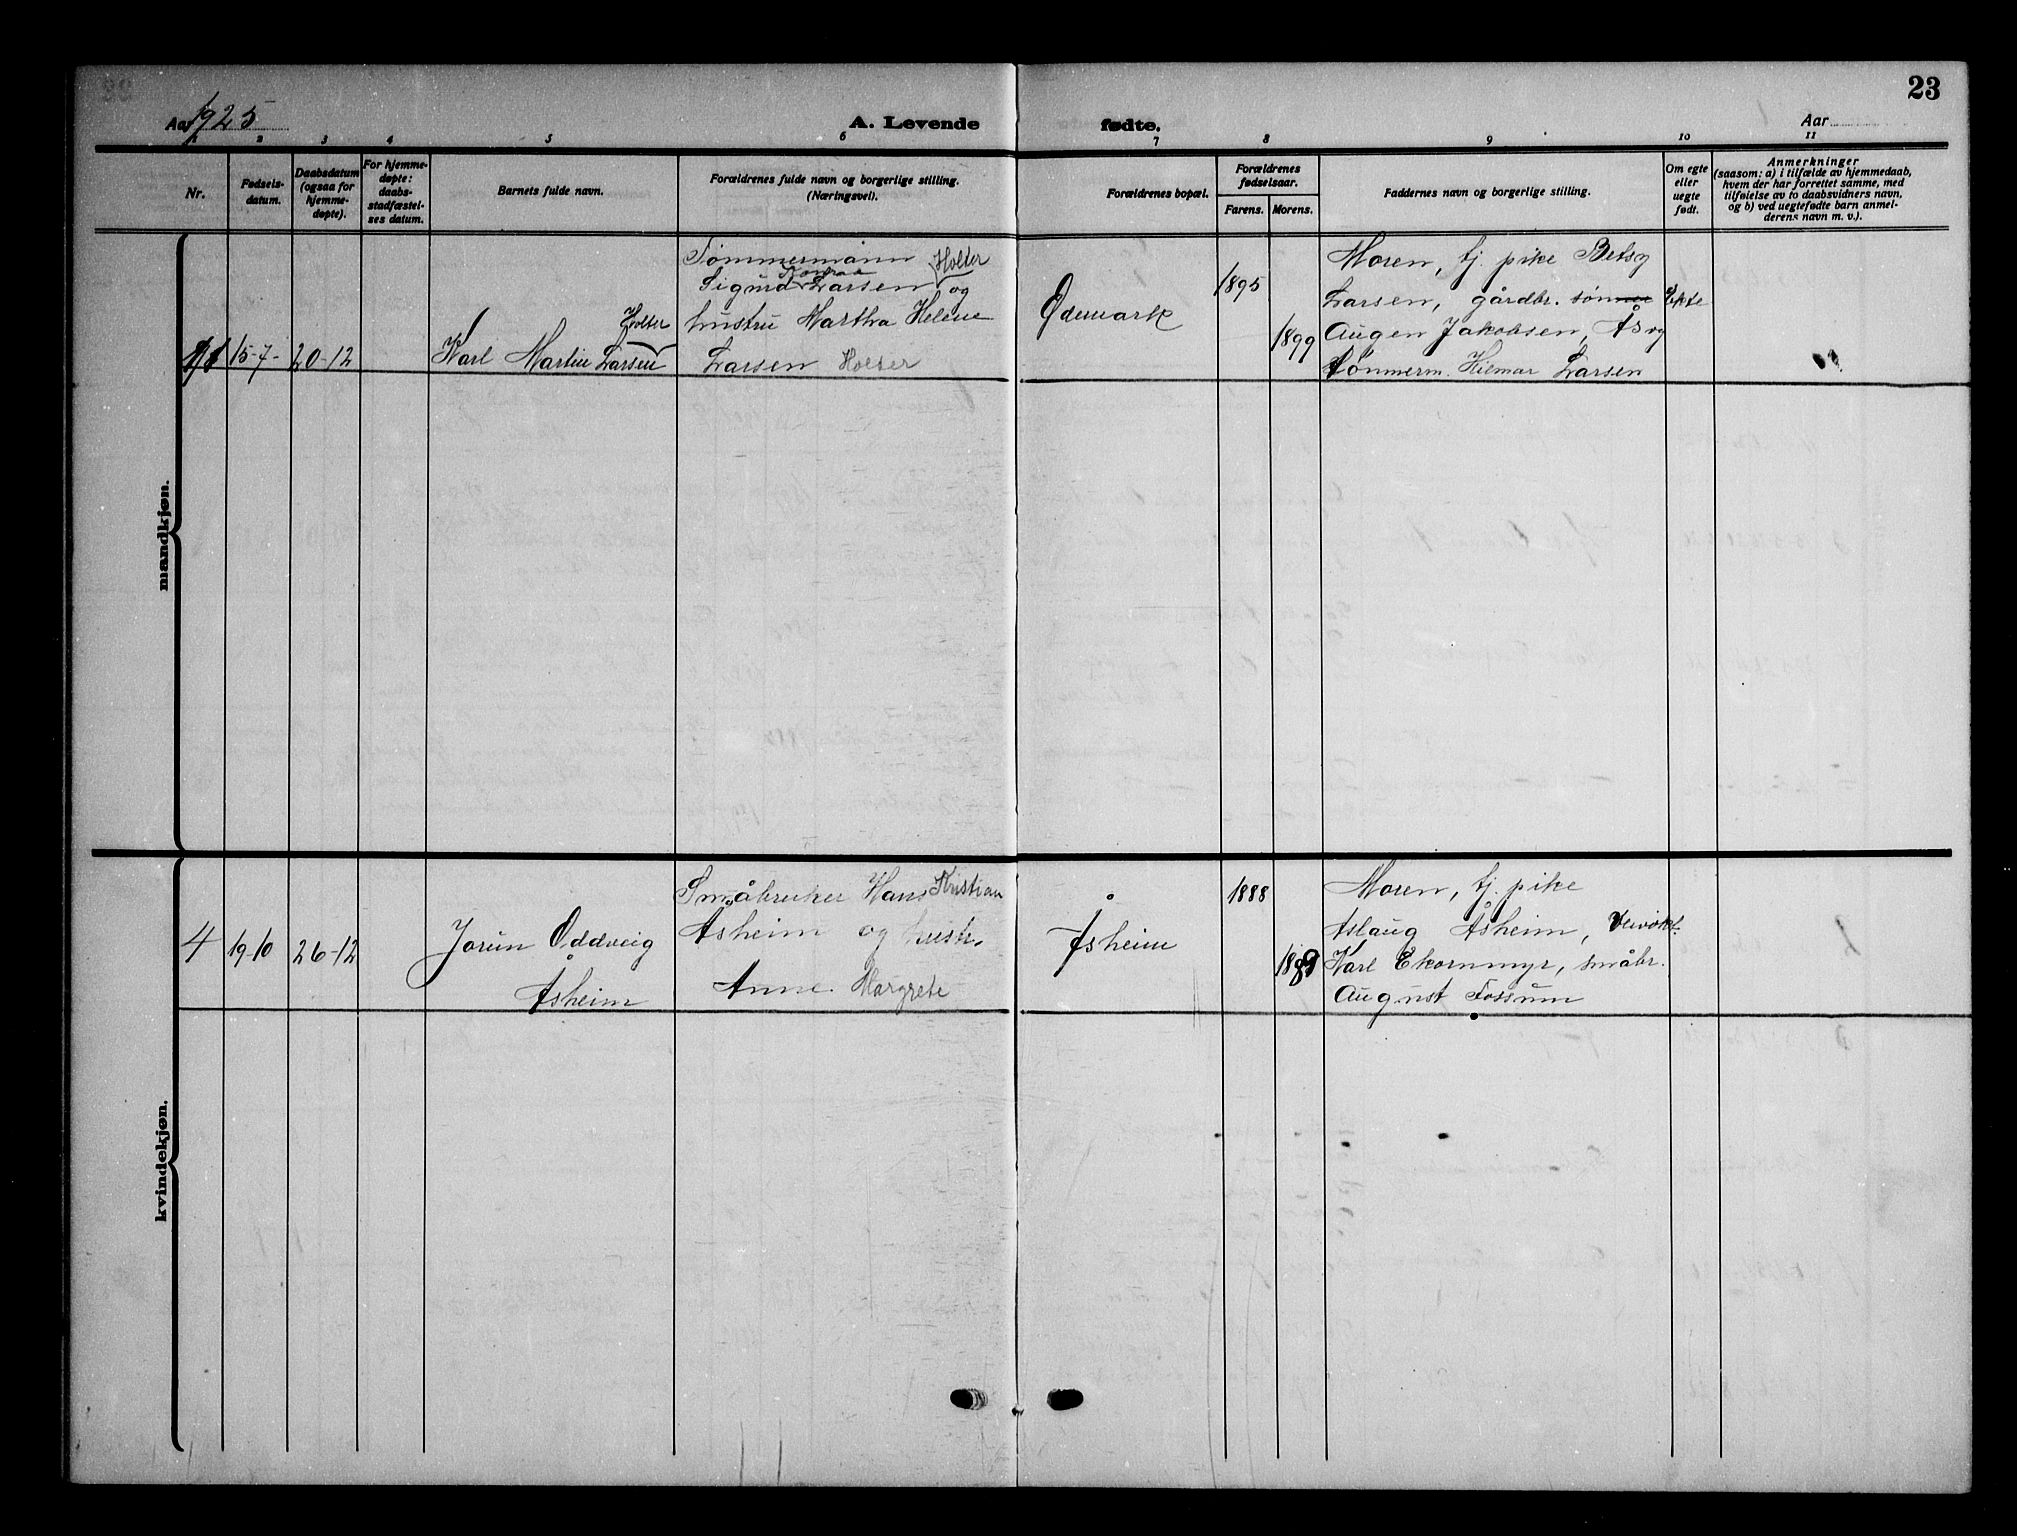 23
Aar 1925
A. Levende fødte.
Aar
1 2 3 4 5 6 7 8 9 10 11
Nr.
Fødsels-
datum.
Daabsdatum
(ogsaa for
hjemme-
døpte).
For hjemme-
døpte:
daabs-
stadfæstel-
ses datum.
Barnets fulde navn.
Forældrenes fulde navn og borgerlige stilling.
(Næringsvei).
Forældrenes bopæl.
Forældrenes
fødselsaar.
Farens. Morens.
Faddernes navn og borgerlige stilling.
Om egte
eller
uegte
født.
Anmerkninger
(saasom: a) i tilfælde av hjemmedaab,
hvem der har forrettet samme, med
tilføielse av to daabsvidners navn,
og b) ved uegtefødte barn anmel-
derens navn m. v.).
mandkjøn.
11
15-7-
20-12
Holter
Karl Martin Larsen
Tømmermann Holter
Konrad
Sigurd Larsen og
hustru Martha Helene
Larsen Holter
Ødemark
1895
1899
Moren, tj. pike Betsy
Larsen, gårdbr. sønner
Augen Jakobsen, Ås og
tømmerm. Hilmar Larsen
Ekte
kvindekjøn.
4
19-10
26-12
Jorun Oddveig
Åsheim
Småbruker Hans Kristian
Åsheim og hustr.
Anne Margrete
Åsheim
1888
1889
Moren, tj. pike
Aslaug Åsheim,
Karl Ekornmyr, småbr.
August Fossum